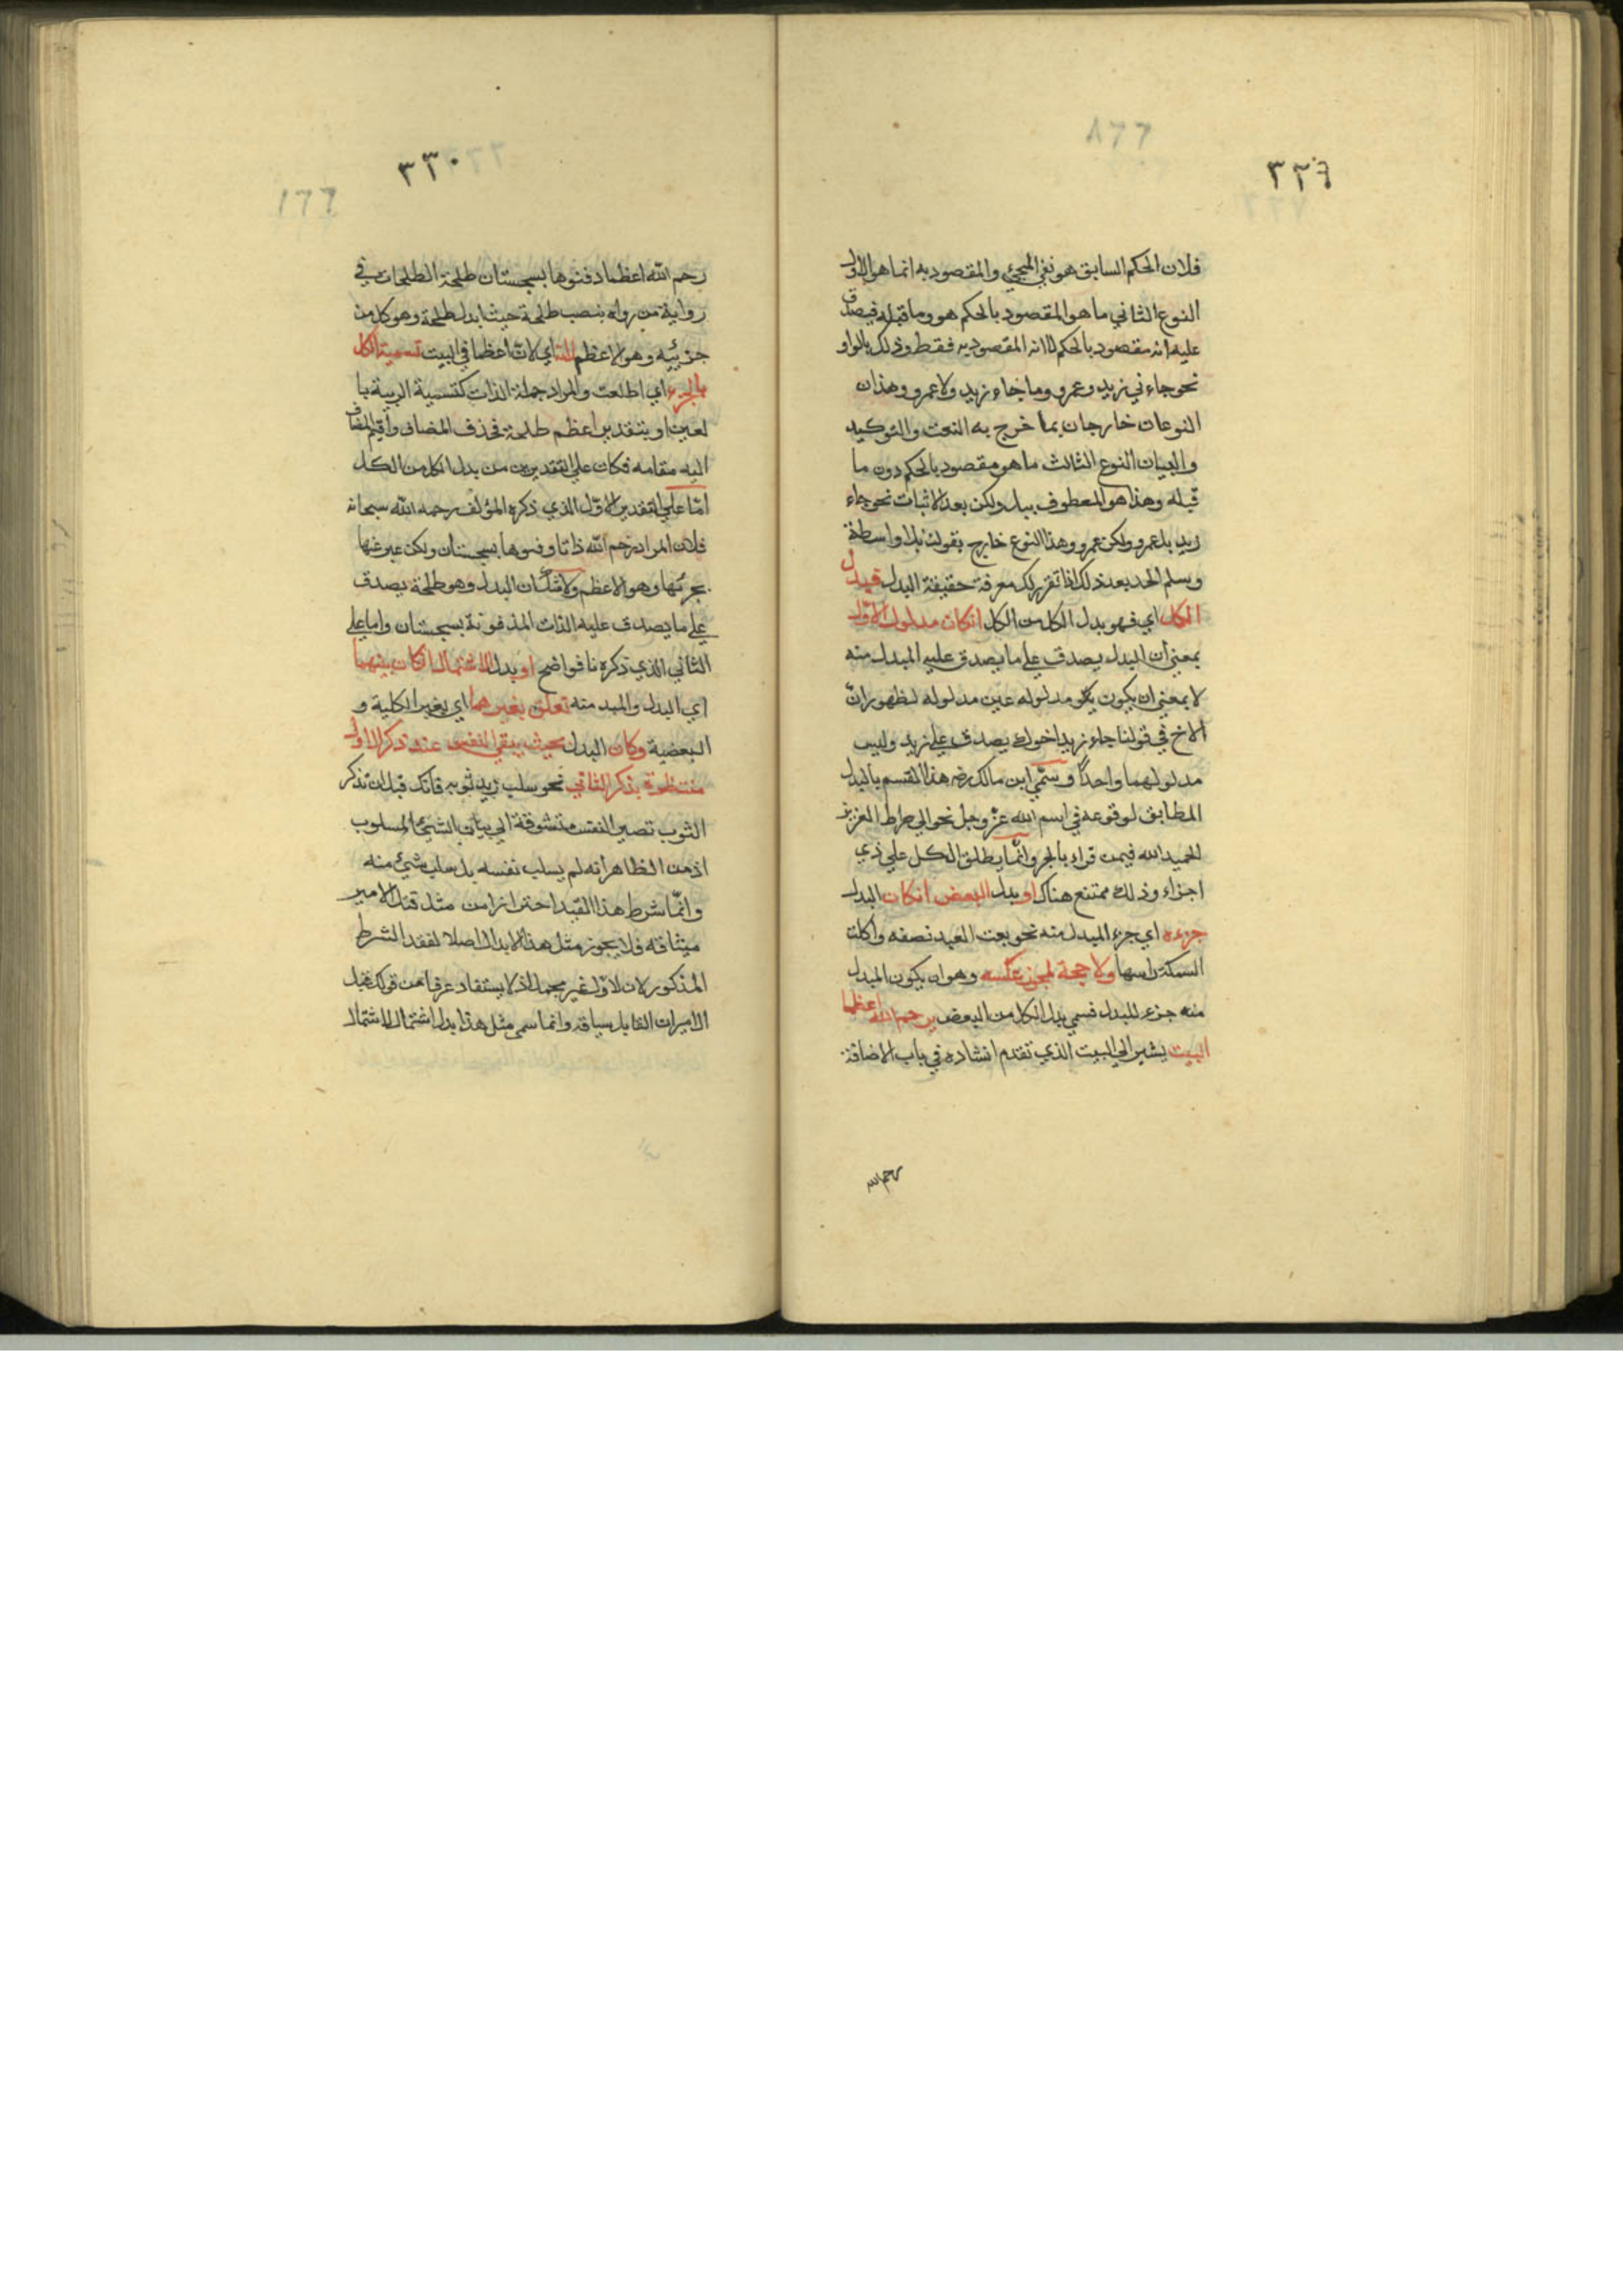 ٣٢٩
فلان الحكم السابق هو نفي المجيئ والمقصود به انما هو الاول
النوع الثاني ما هو المقصود بالحكم هو وما قبله فيصدق
عليه انه مقصود بالحكم لا انه المقصود به فقط وذلك بالواو
نحو جاءني زيد وعمرو وما جاء زيد ولا عمرو وهذان
النوعان خارجان بما خرج به النعت والتوكيد
والبيان النوع الثالث ما هو مقصود بالحكم دون ما
قبله وهذا هو المعطوف ببل ولكن بعد الاثبات نحو جاء
زيد بل عمرو ولكن عمرو وهذا النوع خارج بقولنا بلا واسطة
وسلم الحد بعد ذلك اذا تقرر لك معرفة حقيقة البدل فبدل
الكل اي فهو بدل الكل من الكل ان كان مدلول الاول
بمعني ان البدل يصدق علي ما يصدق عليه المبدل منه
لا بمعني ان يكون مدلوله عين مدلوله لظهور ان
الاخ في قولنا جاء زيد اخوك يصدق علي زيد وليس
مدلولهما واحدًا وسمّي ابن مالك هذا القسم بالبدل
المطابق لوقوعه في اسم الله عزّ وجل نحو الي صراط العزيز
الحميد الله فيمن قراء بالجر وانّما يطلق الكل علي ذي
اجزاء وذلك ممتنع هناك او بدل البعض ان كان البدل
جزءه اي جزء المبدل منه نحو بعت العبد نصفه واكلت
السمكة راسها ولا حجة لمجوز عكسه وهو ان يكون المبدل
منه جزء للبدل فسمي بدل الكل من البعض برحم الله اعظما
البيت يشير الي البيت الذي تقدم انشاده في باب الاضافة
رحم الله
٣٣٠
رحم الله اعظما دفنوها بسجستان طلحة الطلحات في
رواية من رواه بنصب طلحة حيث ابدل طلحة وهو كل من
جزئيه وهو الاعظم اي لان اعظما في البيت تسمية الكل
بالجزء اي اطلعت والمراد جملة الذات كتسمية الربية با
لعين او بتقدير اعظم طلحة فحذف المضاف واقيم المضاف
اليه مقامه فكان علي التقديرين من بدل الكل من الكل
امّا علي التقدير الاول الذي ذكره المؤلف رحمه الله سبحانه
فلان المراد رحم الله ذاتا دفنوها بسجستان ولكن عبر عنها
بجزئها وهو الاعظم ولا شك ان البدل وهو طلحة يصدق
علي ما يصدق عليه الذات المدفونة بسجستان واما علي
الثاني الذي ذكره نا فواضح او بدل الاشتمال ان كان بينهما
اي البدل والمبدل منه تعلق بغيرهما اي بغير الكلية و
البعضية وكان البدل بحيث يبقي النفس عند ذكر الاول
منتظرة بذكر الثاني نحو سلب زيد ثوبه فانك قبل ان تذكر
الثوب تصير النفس متشوقة الي بيان الشيئ المسلوب
اذ من الظاهر انه لم يسلب نفسه بل سلب شيئ منه
وانّما شرط هذا القيد احترازا من مثل قتل الامير
سيافه فلا يجوز مثل هذا الابدال اصلا لفقد الشرط
المذكور لان الاول غير مجمل اذ لا يستفاد عرفا من قولك قتل
الامير ان القاتل سيافه وانما سمي مثل هذا بدل اشتمال لاشتمال